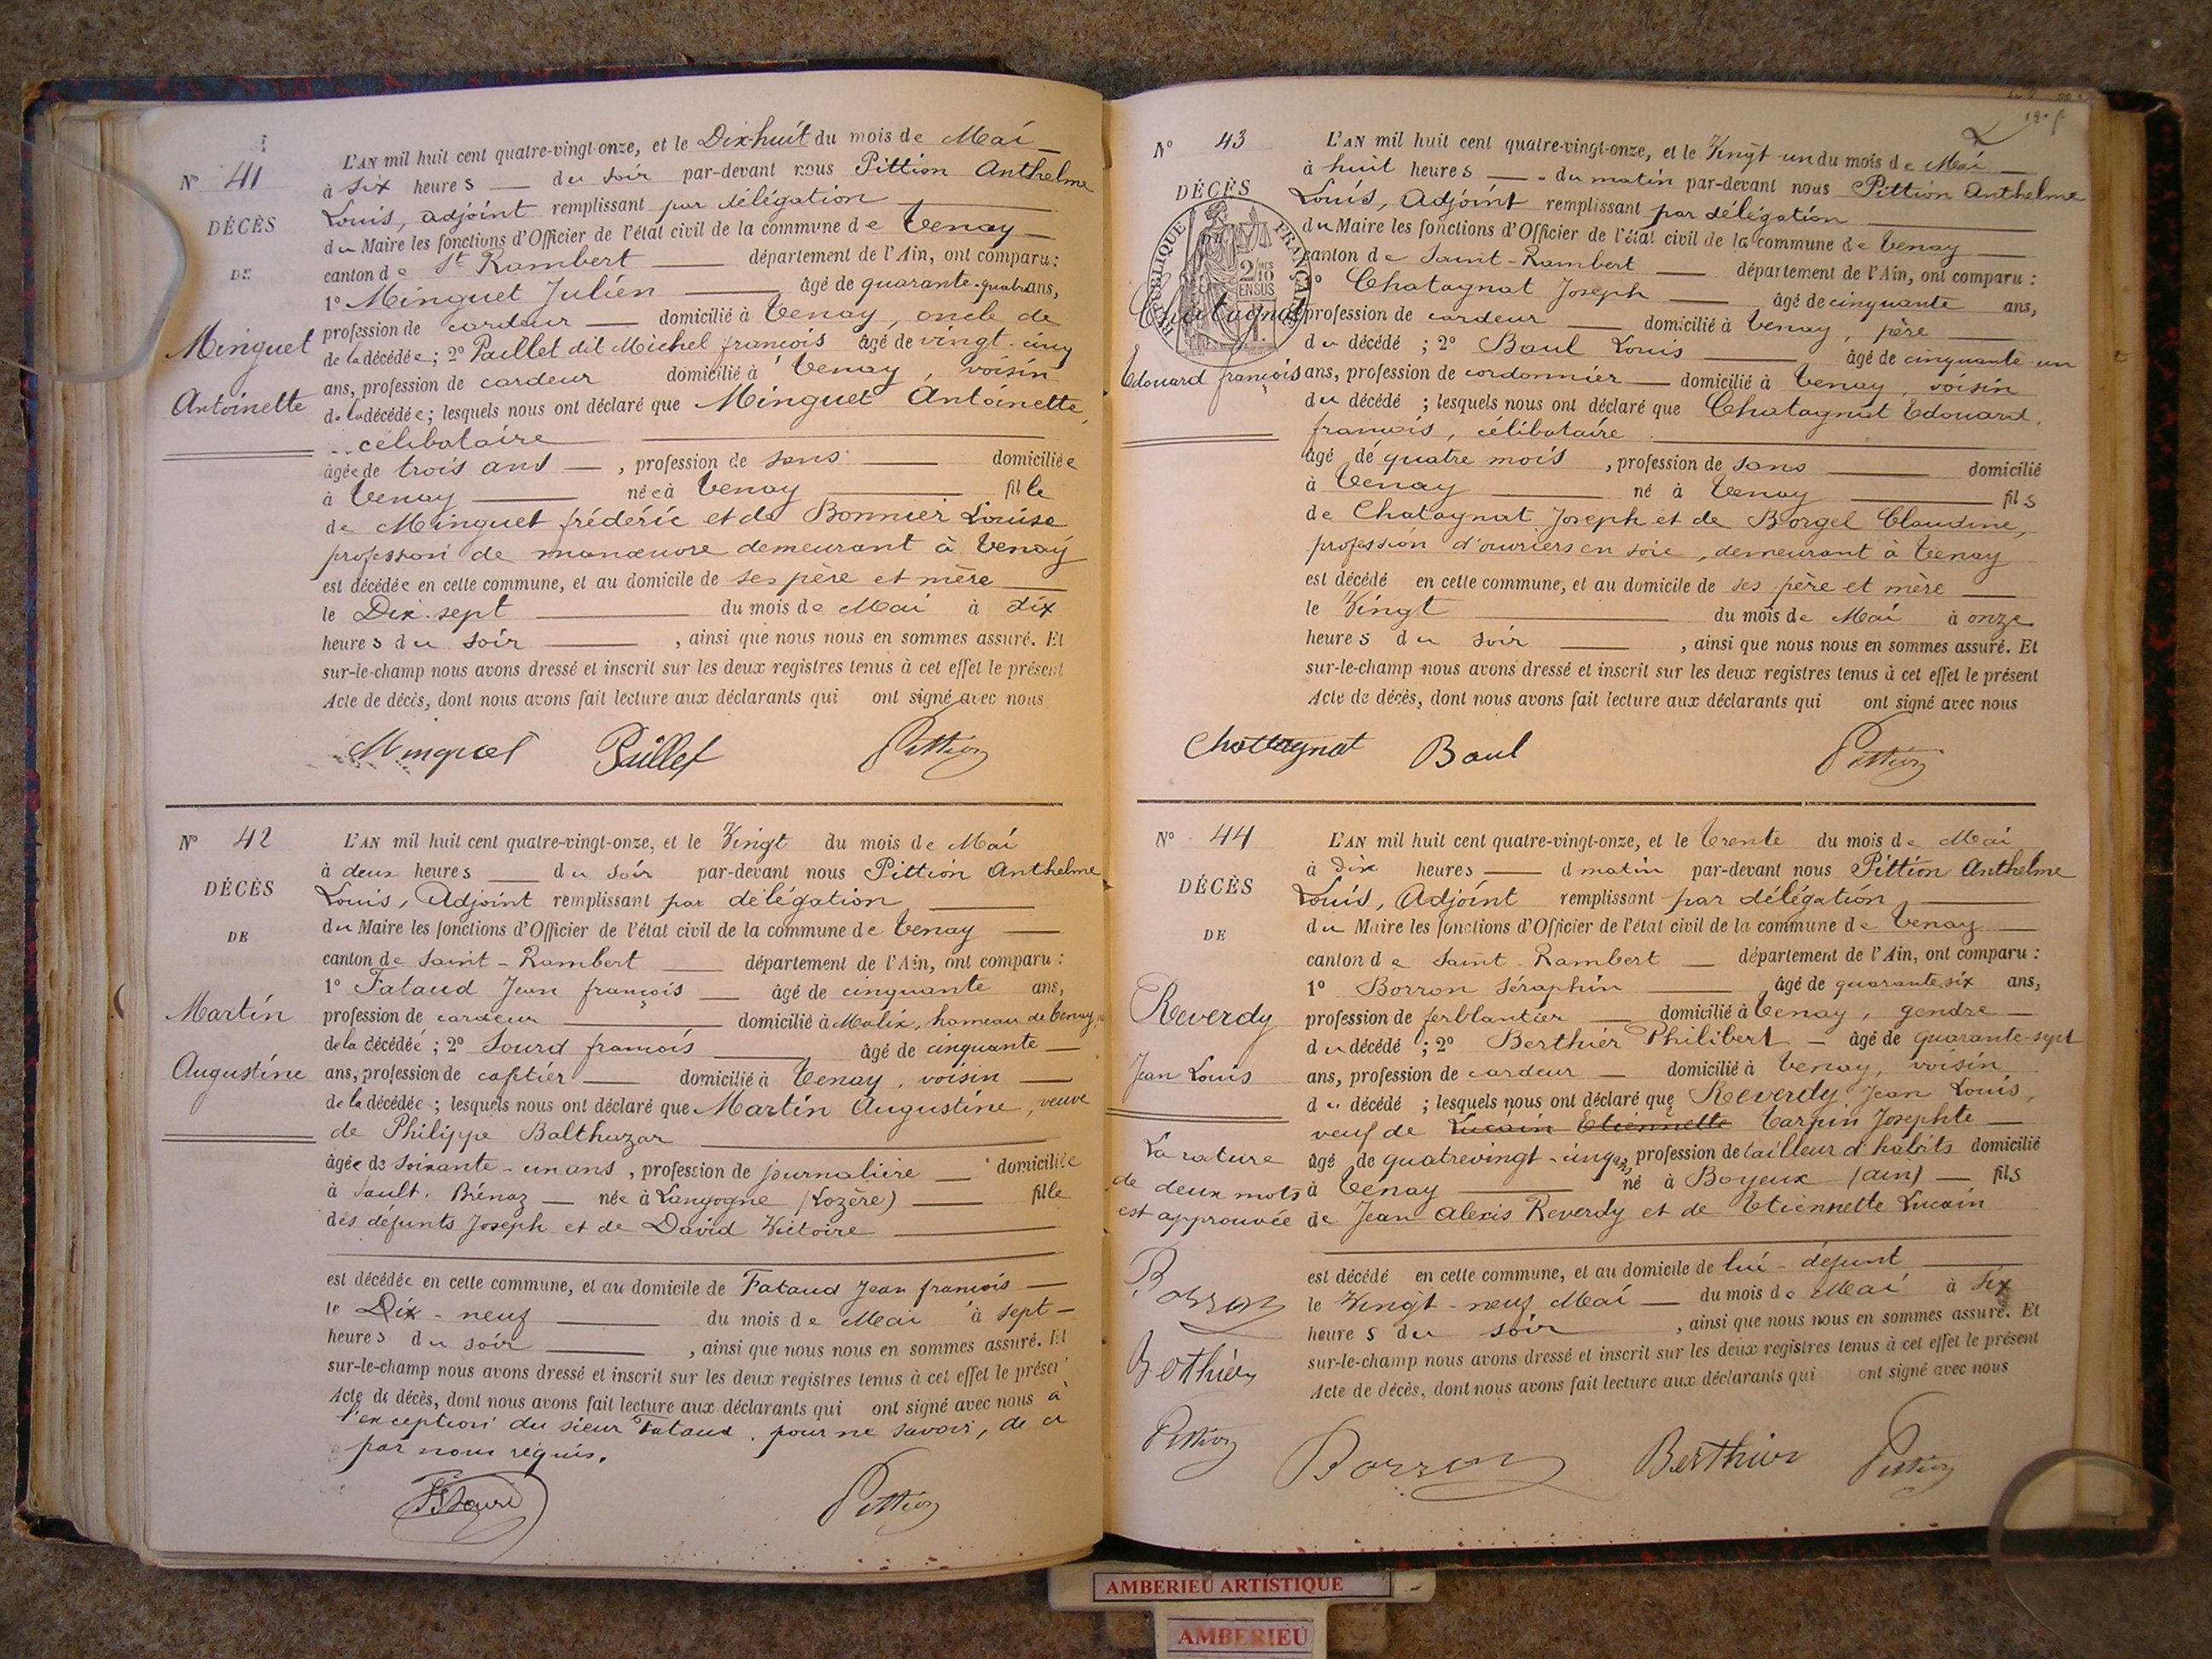 N° 41
DÉCÈS
DE
Minguet
Antoinette
L'AN mil huit cent quatre-vingt-onze, et le Dix-huit du mois de Mai
à six heures du soir par-devant nous Pittion Anthelme
Louis, adjoint remplissant par délégation
du Maire les fonctions d'Officier de l'état civil de la commune de Tenay
canton de St Rambert département de l'Ain, ont comparu :
1° Minguet Julien âgé de quarante-quatre ans,
profession de cardeur domicilié à Tenay, oncle de
de la décédée ; 2° Paillet dit Michel françois âgé de vingt-cinq
ans, profession de cardeur domicilié à Tenay, voisin
de la décédée ; lesquels nous ont déclaré que Minguet Antoinette,
célibataire
âgée de trois ans, profession de sans domiciliée
à Tenay née à Tenay fille
de Minguet frédéric et de Bonnier Louise
profession de manœuvre demeurant à Tenay
est décédée en cette commune, et au domicile de ses père et mère
le Dix-sept du mois de Mai à dix
heures du soir, ainsi que nous nous en sommes assuré. Et
sur-le-champ nous avons dressé et inscrit sur les deux registres tenus à cet effet le présent
Acte de décès, dont nous avons fait lecture aux déclarants qui ont signé avec nous
Minguet Paillet Pittion
N° 42
DÉCÈS
DE
Martin
Augustine
L'AN mil huit cent quatre-vingt-onze, et le Vingt du mois de Mai
à deux heures du soir par-devant nous Pittion Anthelme
Louis, Adjoint remplissant par délégation
du Maire les fonctions d'Officier de l'état civil de la commune de Tenay
canton de Saint-Rambert département de l'Ain, ont comparu :
1° Fataud Jean françois âgé de cinquante ans,
profession de cardeur domicilié à Malix, hameau de Tenay,
de la décédée ; 2° Sourd françois âgé de cinquante
ans, profession de cafetier domicilié à Tenay, voisin
de la décédée ; lesquels nous ont déclaré que Martin Augustine, veuve
de Philippe Balthazar
âgée de soixante-un ans, profession de journalière domiciliée
à Sault-Brénaz née à Langogne (Lozère) fille
des défunts Joseph et de David Victoire
est décédée en cette commune, et au domicile de Fataud Jean françois
le Dix-neuf du mois de Mai à sept
heures du soir, ainsi que nous nous en sommes assuré. Et
sur-le-champ nous avons dressé et inscrit sur les deux registres tenus à cet effet le présent
Acte de décès, dont nous avons fait lecture aux déclarants qui ont signé avec nous à
l'exception du sieur Fataud, pour ne savoir, de ce
par nous requis.
Pittion
N° 43
DÉCÈS
RÉPUBLIQUE FRANÇAISE
2/10 EN SUS
Chatagnat
Edouard françois
L'AN mil huit cent quatre-vingt-onze, et le Vingt-un du mois de Mai
à huit heures du matin par-devant nous Pittion Anthelme
Louis, Adjoint remplissant par délégation
du Maire les fonctions d'Officier de l'état civil de la commune de Tenay
canton de Saint-Rambert département de l'Ain, ont comparu :
1° Chatagnat Joseph âgé de cinquante ans,
profession de cardeur domicilié à Tenay, père
du décédé ; 2° Baul Louis âgé de cinquante un
ans, profession de cordonnier domicilié à Tenay, voisin
du décédé ; lesquels nous ont déclaré que Chatagnat Edouard,
françois, célibataire
âgé de quatre mois, profession de sans domicilié
à Tenay né à Tenay fils
de Chatagnat Joseph et de Borgel Claudine,
profession d'ouvriers en soie, demeurant à Tenay
est décédé en cette commune, et au domicile de ses père et mère
le Vingt du mois de Mai à onze
heures du soir, ainsi que nous nous en sommes assuré. Et
sur-le-champ nous avons dressé et inscrit sur les deux registres tenus à cet effet le présent
Acte de décès, dont nous avons fait lecture aux déclarants qui ont signé avec nous
Chattagnat Baul Pittion
N° 44
DÉCÈS
DE
Reverdy
Jean Louis
La rature
de deux mots
est approuvée
Borron
Berthier
Pittion
L'AN mil huit cent quatre-vingt-onze, et le Trente du mois de Mai
à Dix heures d matin par-devant nous Pittion Anthelme
Louis, Adjoint remplissant par délégation
du Maire les fonctions d'Officier de l'état civil de la commune de Tenay
canton de Saint-Rambert département de l'Ain, ont comparu :
1° Borron Séraphin âgé de quarante six ans,
profession de ferblantier domicilié à Tenay, gendre
du décédé ; 2° Berthier Philibert âgé de quarante-sept
ans, profession de cardeur domicilié à Tenay, voisin
du décédé ; lesquels nous ont déclaré que Reverdy Jean Louis,
veuf de Lucain Etiennette Tarpin Josephte
âgé de quatrevingt-cinq ans, profession de tailleur d'habits domicilié
à Tenay né à Boyeux (ain) fils
de Jean Alexis Reverdy et de Etiennette Lucain
est décédé en cette commune, et au domicile de lui-défunt
le Vingt-neuf Mai du mois de Mai à six
heures du soir, ainsi que nous nous en sommes assuré. Et
sur-le-champ nous avons dressé et inscrit sur les deux registres tenus à cet effet le présent
Acte de décès, dont nous avons fait lecture aux déclarants qui ont signé avec nous
Borron Berthier Pittion
AMBERIEU ARTISTIQUE
AMBERIEU